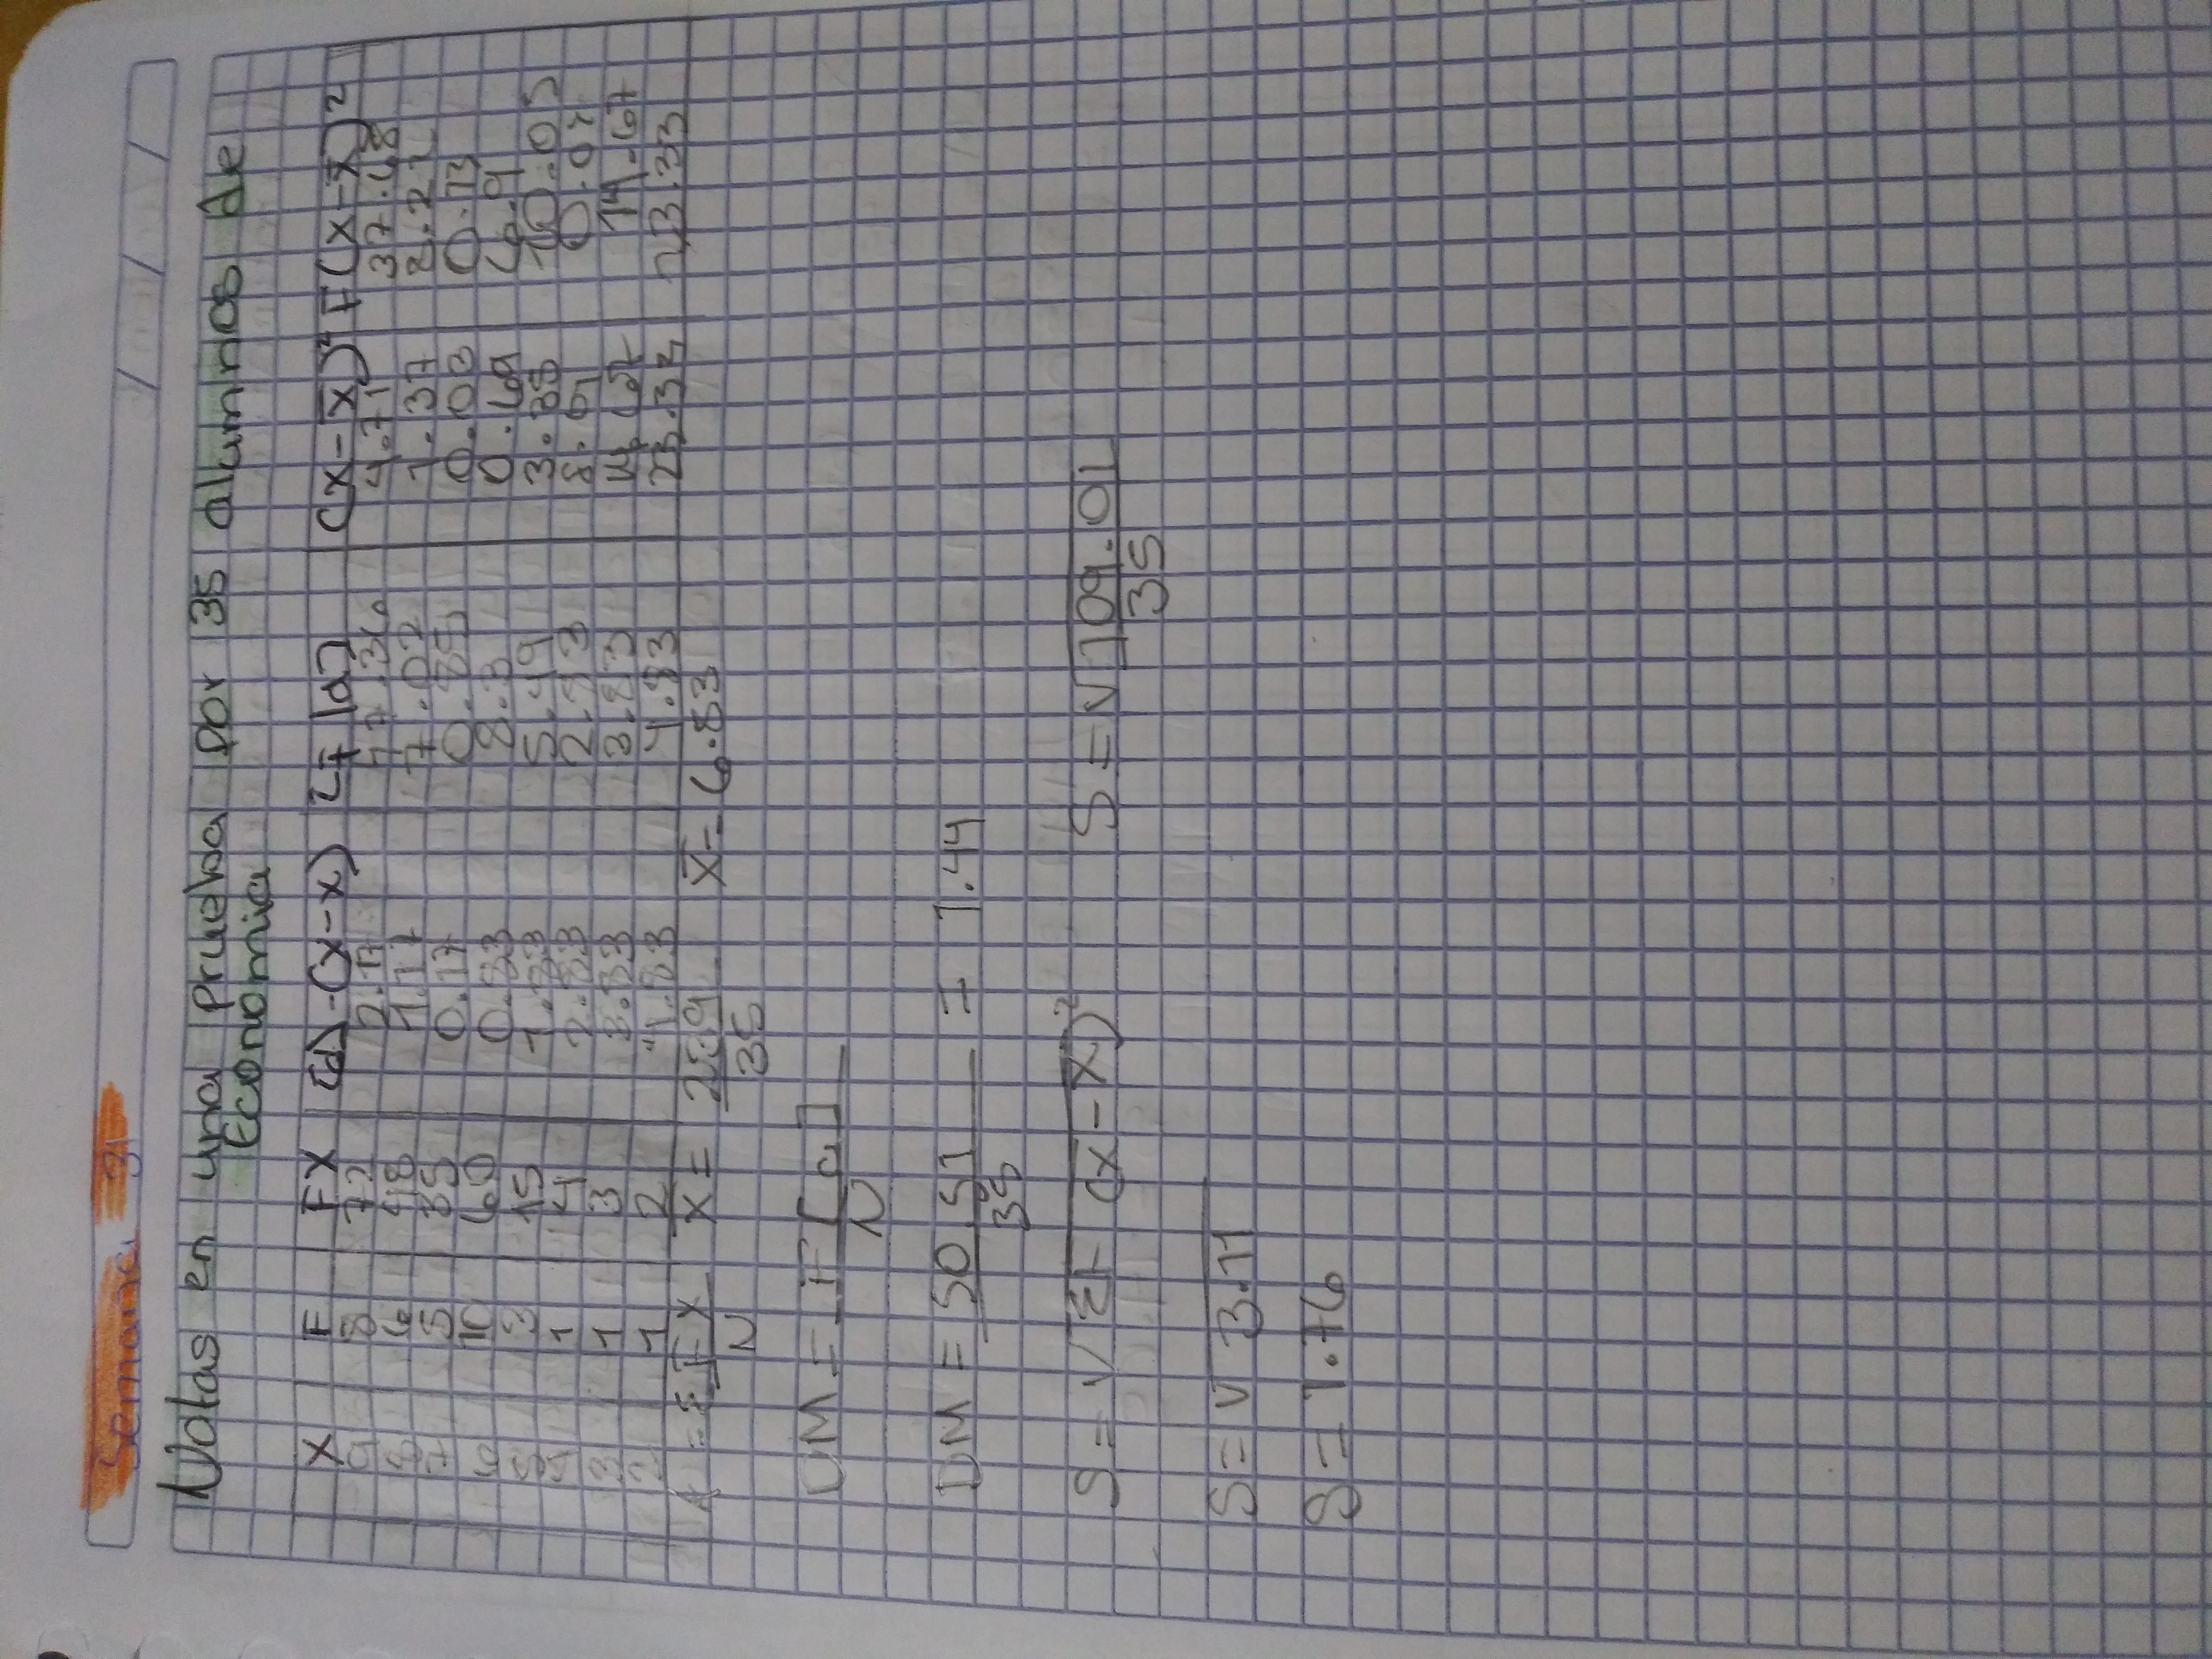 Semana 31
Notas en una Prueba por 35 alumnos de
Economia
X F FX (d)-(x-x) F|d| (x-x̄)² F(x-x̄)²
9 8 72 2.17 17.36 4.71 37.68
8 6 48 1.17 7.02 1.37 2.22
7 5 35 0.17 0.85 0.03 0.13
6 10 60 0.83 8.3 0.69 6.9
5 3 15 1.83 5.49 3.35 10.05
4 1 4 2.83 2.83 8.01
3 1 3 3.83 3.83 14.67 14.67
2 1 2 4.83 4.83 23.33 23.33
= ΣFX X = 239 X̄= 6.83
N 35
DM = F[d]
N
DM = 50.51 = 1.44
35
S = √ΣF (x-x̄)² S = √109.01
35
S = √3.11
S = 1.76